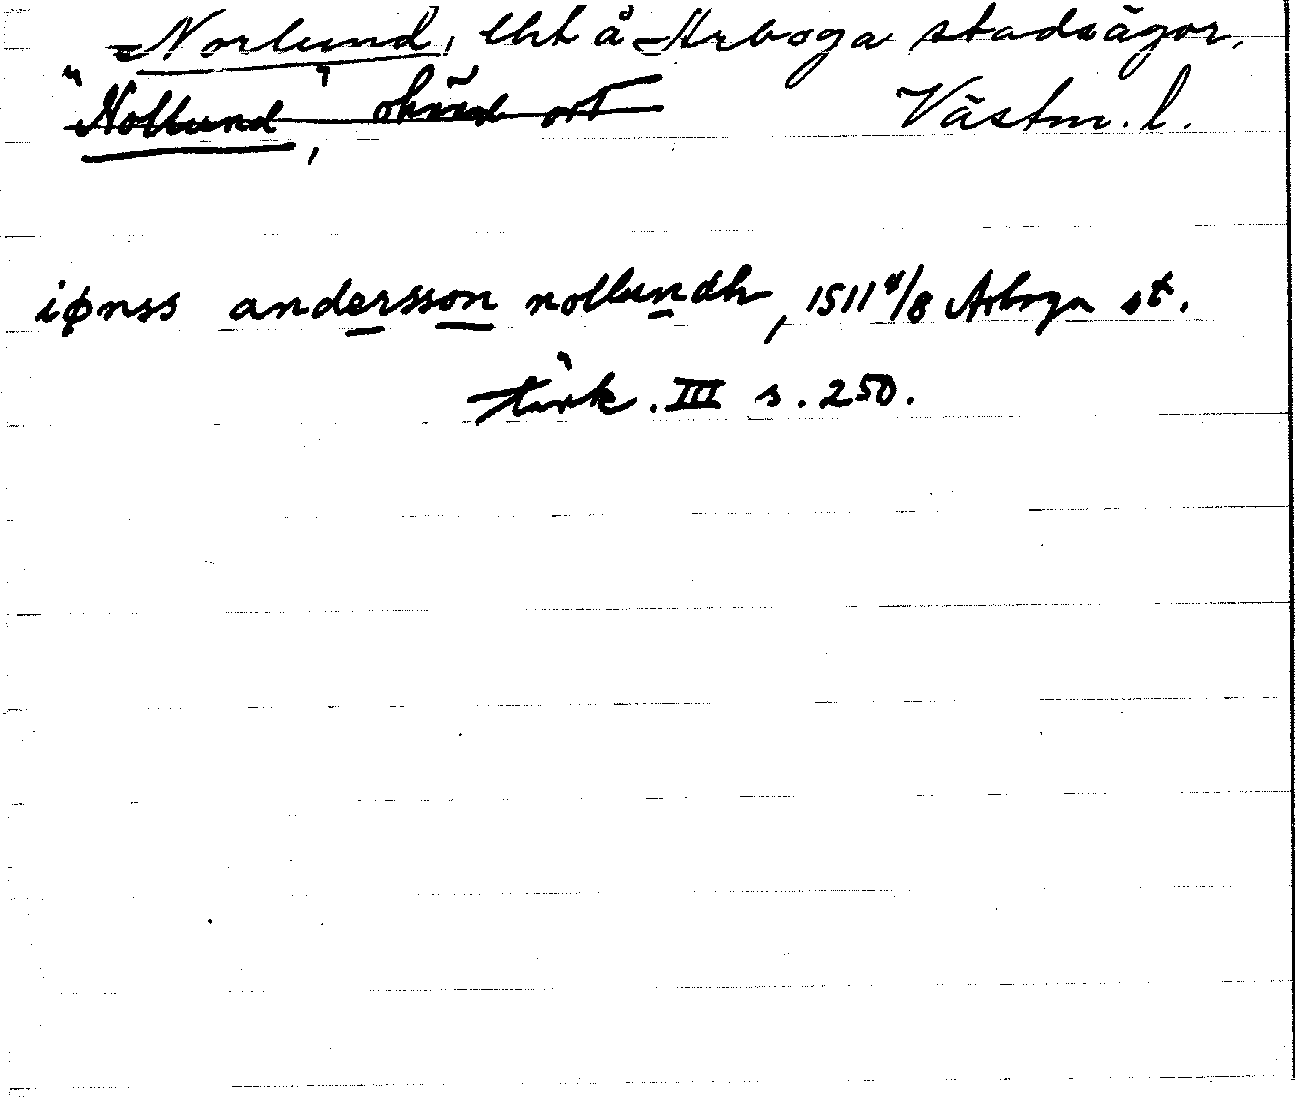 Norlund, lht å Arboga stadsägor,
"Nollund", okänd ort Västm. l.
iønss andersson nollundh, 1511 4/8 Arboga st.
tänk. III s. 250.